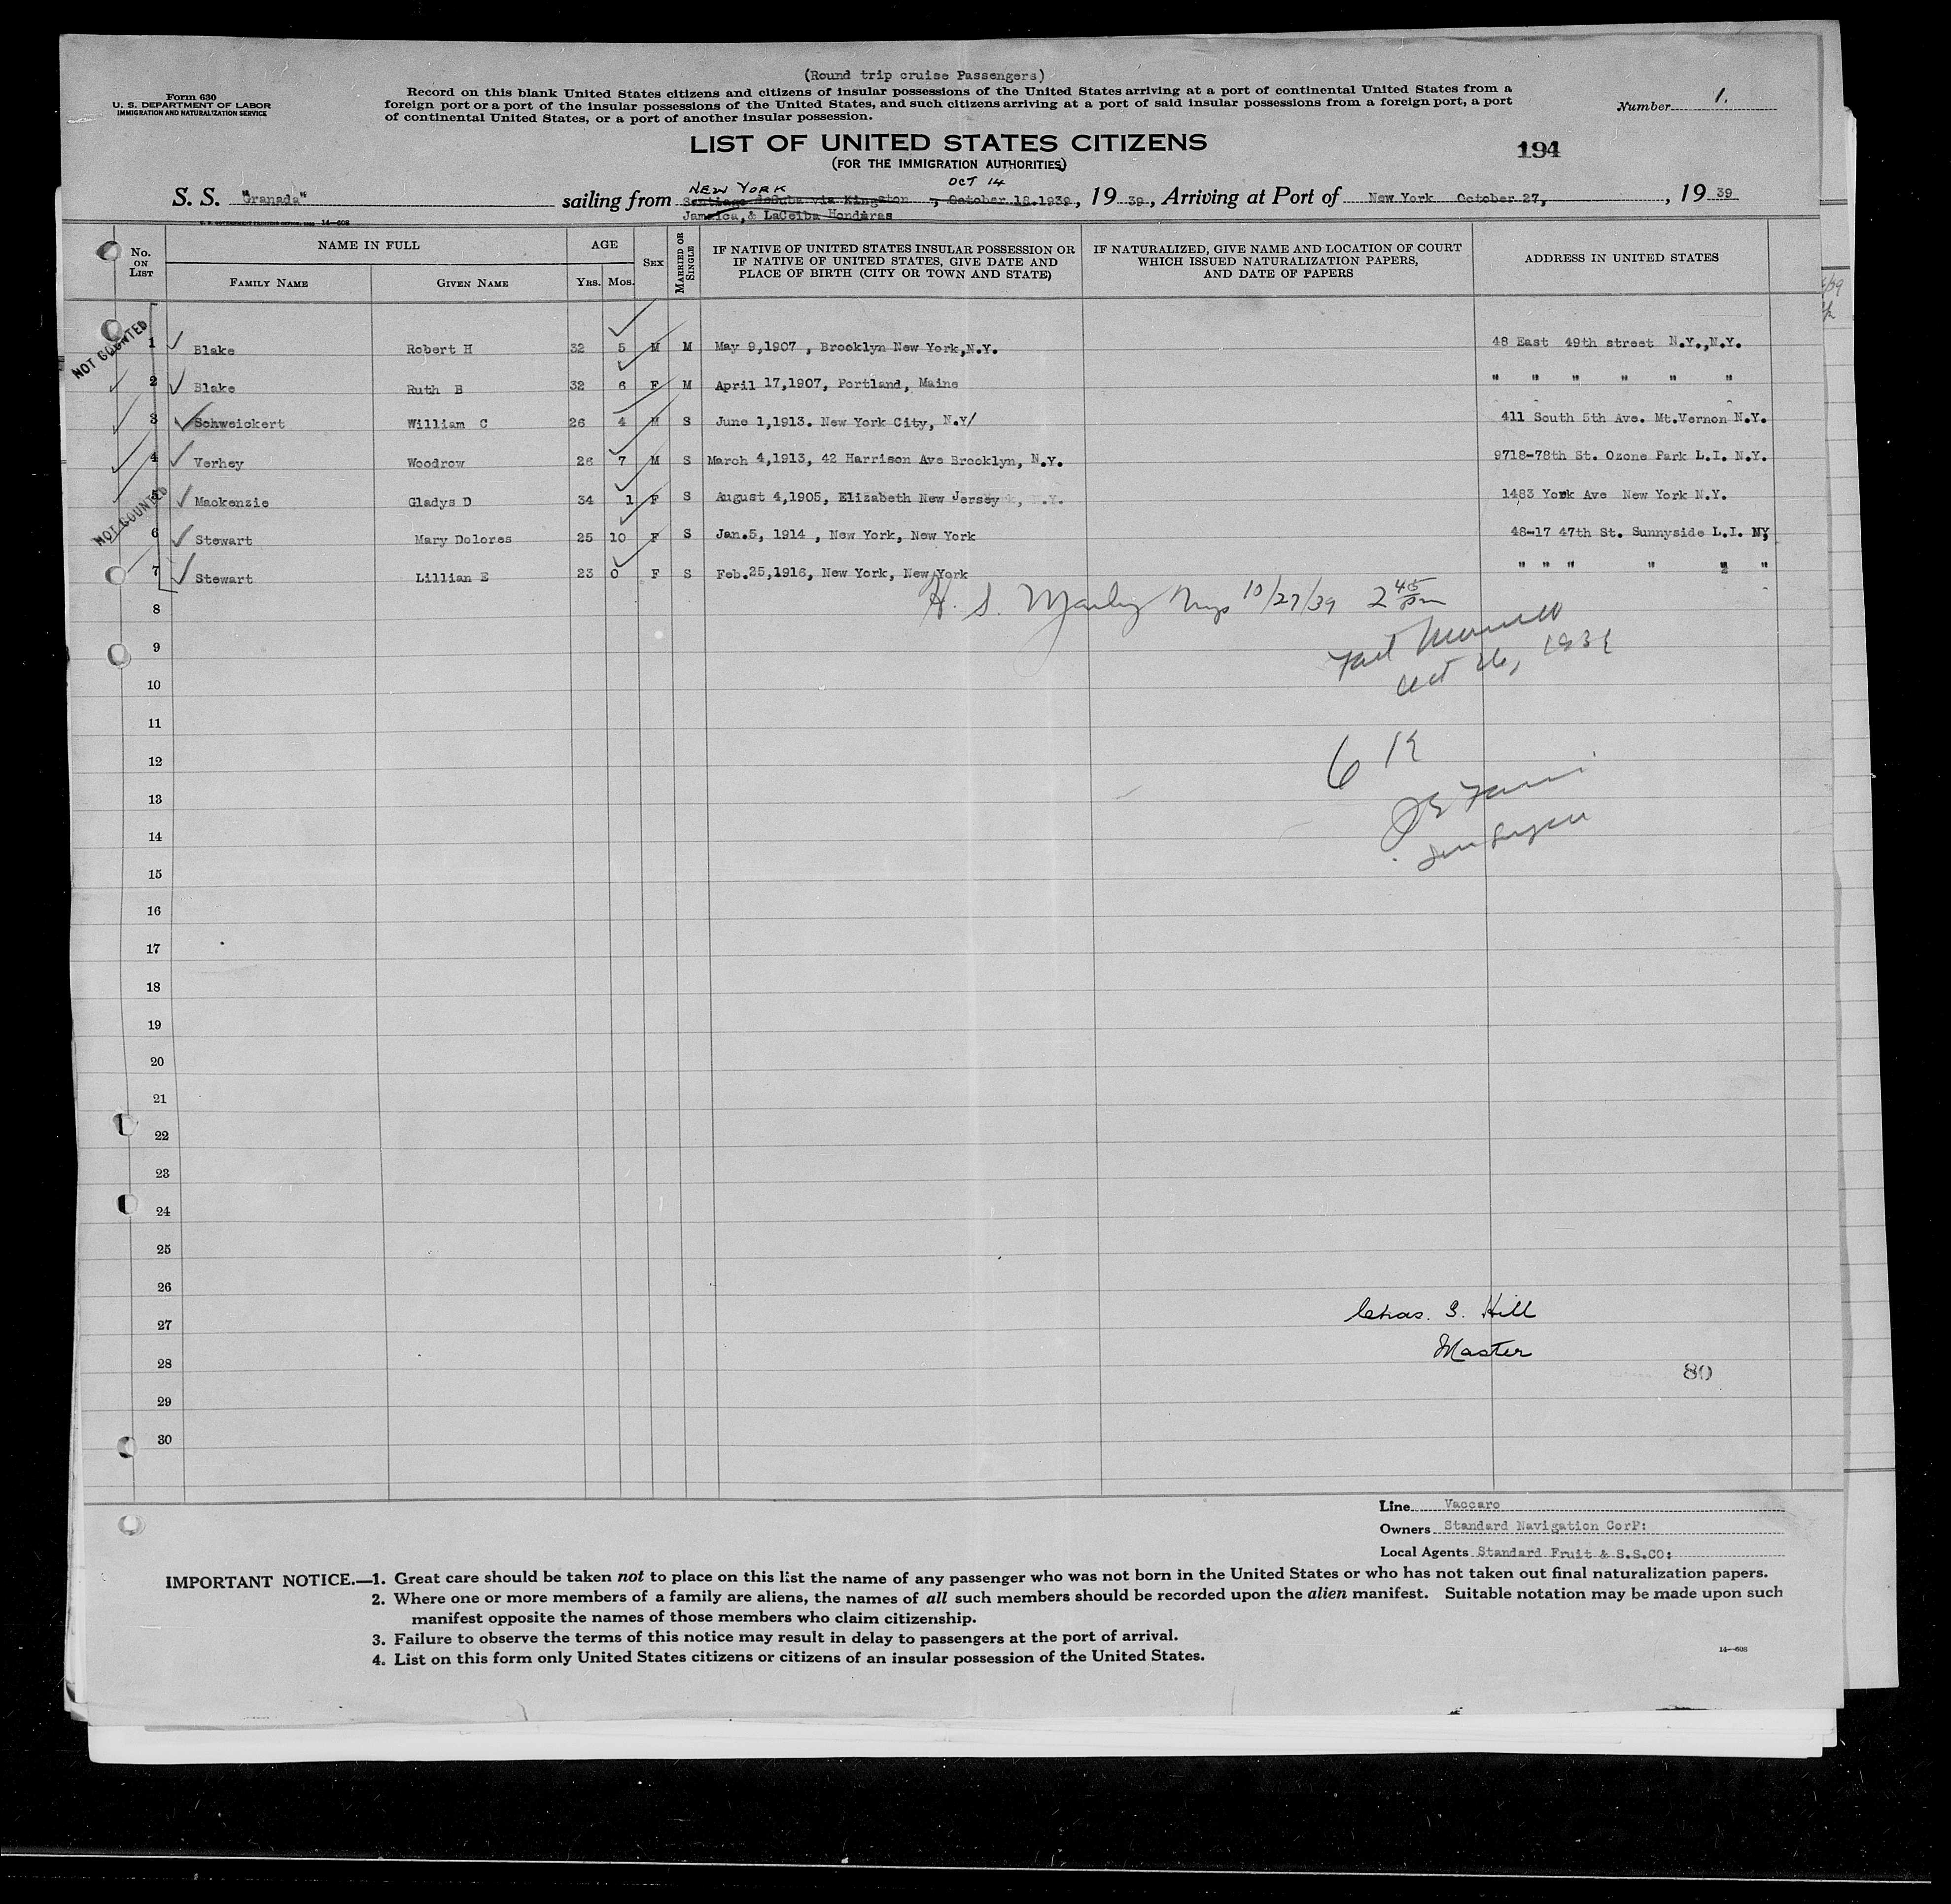 (Round trip cruise Passengers)
Form 630
U. S. DEPARTMENT OF LABOR
IMMIGRATION AND NATURALIZATION SERVICE
Record on this blank United States citizens and citizens of insular possessions of the United States arriving at a port of continental United States from a
foreign port or a port of the insular possessions of the United States, and such citizens arriving at a port of said insular possessions from a foreign port, a port
of continental United States, or a port of another insular possession.
Number 1.
LIST OF UNITED STATES CITIZENS
(FOR THE IMMIGRATION AUTHORITIES)
194
NEW YORK OCT 14
S. S. "Granada" sailing from Santiago deCuba via Kingston , October 18.1939, 19 39, Arriving at Port of New York October 27, , 19 39
Jamaica, & LaCeiba Honduras
No. ON LIST
NAME IN FULL
FAMILY NAME
GIVEN NAME
AGE
YRS. MOS.
SEX
MARRIED OR SINGLE
IF NATIVE OF UNITED STATES INSULAR POSSESSION OR
IF NATIVE OF UNITED STATES, GIVE DATE AND
PLACE OF BIRTH (CITY OR TOWN AND STATE)
IF NATURALIZED, GIVE NAME AND LOCATION OF COURT
WHICH ISSUED NATURALIZATION PAPERS,
AND DATE OF PAPERS
ADDRESS IN UNITED STATES
NOT COUNTED
1 Blake Robert H 32 5 M M May 9,1907 , Brooklyn New York,N.Y. 48 East 49th street N.Y.,N.Y.
2 Blake Ruth B 32 6 F M April 17,1907, Portland, Maine " " " " " "
3 Schweickert William C 26 4 M S June 1,1913. New York City, N.Y/ 411 South 5th Ave. Mt.Vernon N.Y.
4 Verhey Woodrow 26 7 M S March 4,1913, 42 Harrison Ave Brooklyn, N.Y. 9718-78th St. Ozone Park L.I. N.Y.
5 Mackenzie Gladys D 34 1 F S August 4,1905, Elizabeth New Jersey 1483 York Ave New York N.Y.
NOT COUNTED
6 Stewart Mary Dolores 25 10 F S Jan.5, 1914 , New York, New York 48-17 47th St. Sunnyside L.I. NY;
7 Stewart Lillian E 23 0 F S Feb.25,1916, New York, New York " " " " " "
H. S. 10/27/39 2 45 pm
8
9
Oct 26,
10
11
12
6
13
14
15
16
17
18
19
20
21
22
23
24
25
26
27
28
29
30
Chas. S. Hill
Master
80
Line Vaccaro
Owners Standard Navigation CorP:
Local Agents Standard Fruit & S.S.CO:
IMPORTANT NOTICE.—1. Great care should be taken not to place on this list the name of any passenger who was not born in the United States or who has not taken out final naturalization papers.
2. Where one or more members of a family are aliens, the names of all such members should be recorded upon the alien manifest. Suitable notation may be made upon such
manifest opposite the names of those members who claim citizenship.
3. Failure to observe the terms of this notice may result in delay to passengers at the port of arrival.
4. List on this form only United States citizens or citizens of an insular possession of the United States.
14—608